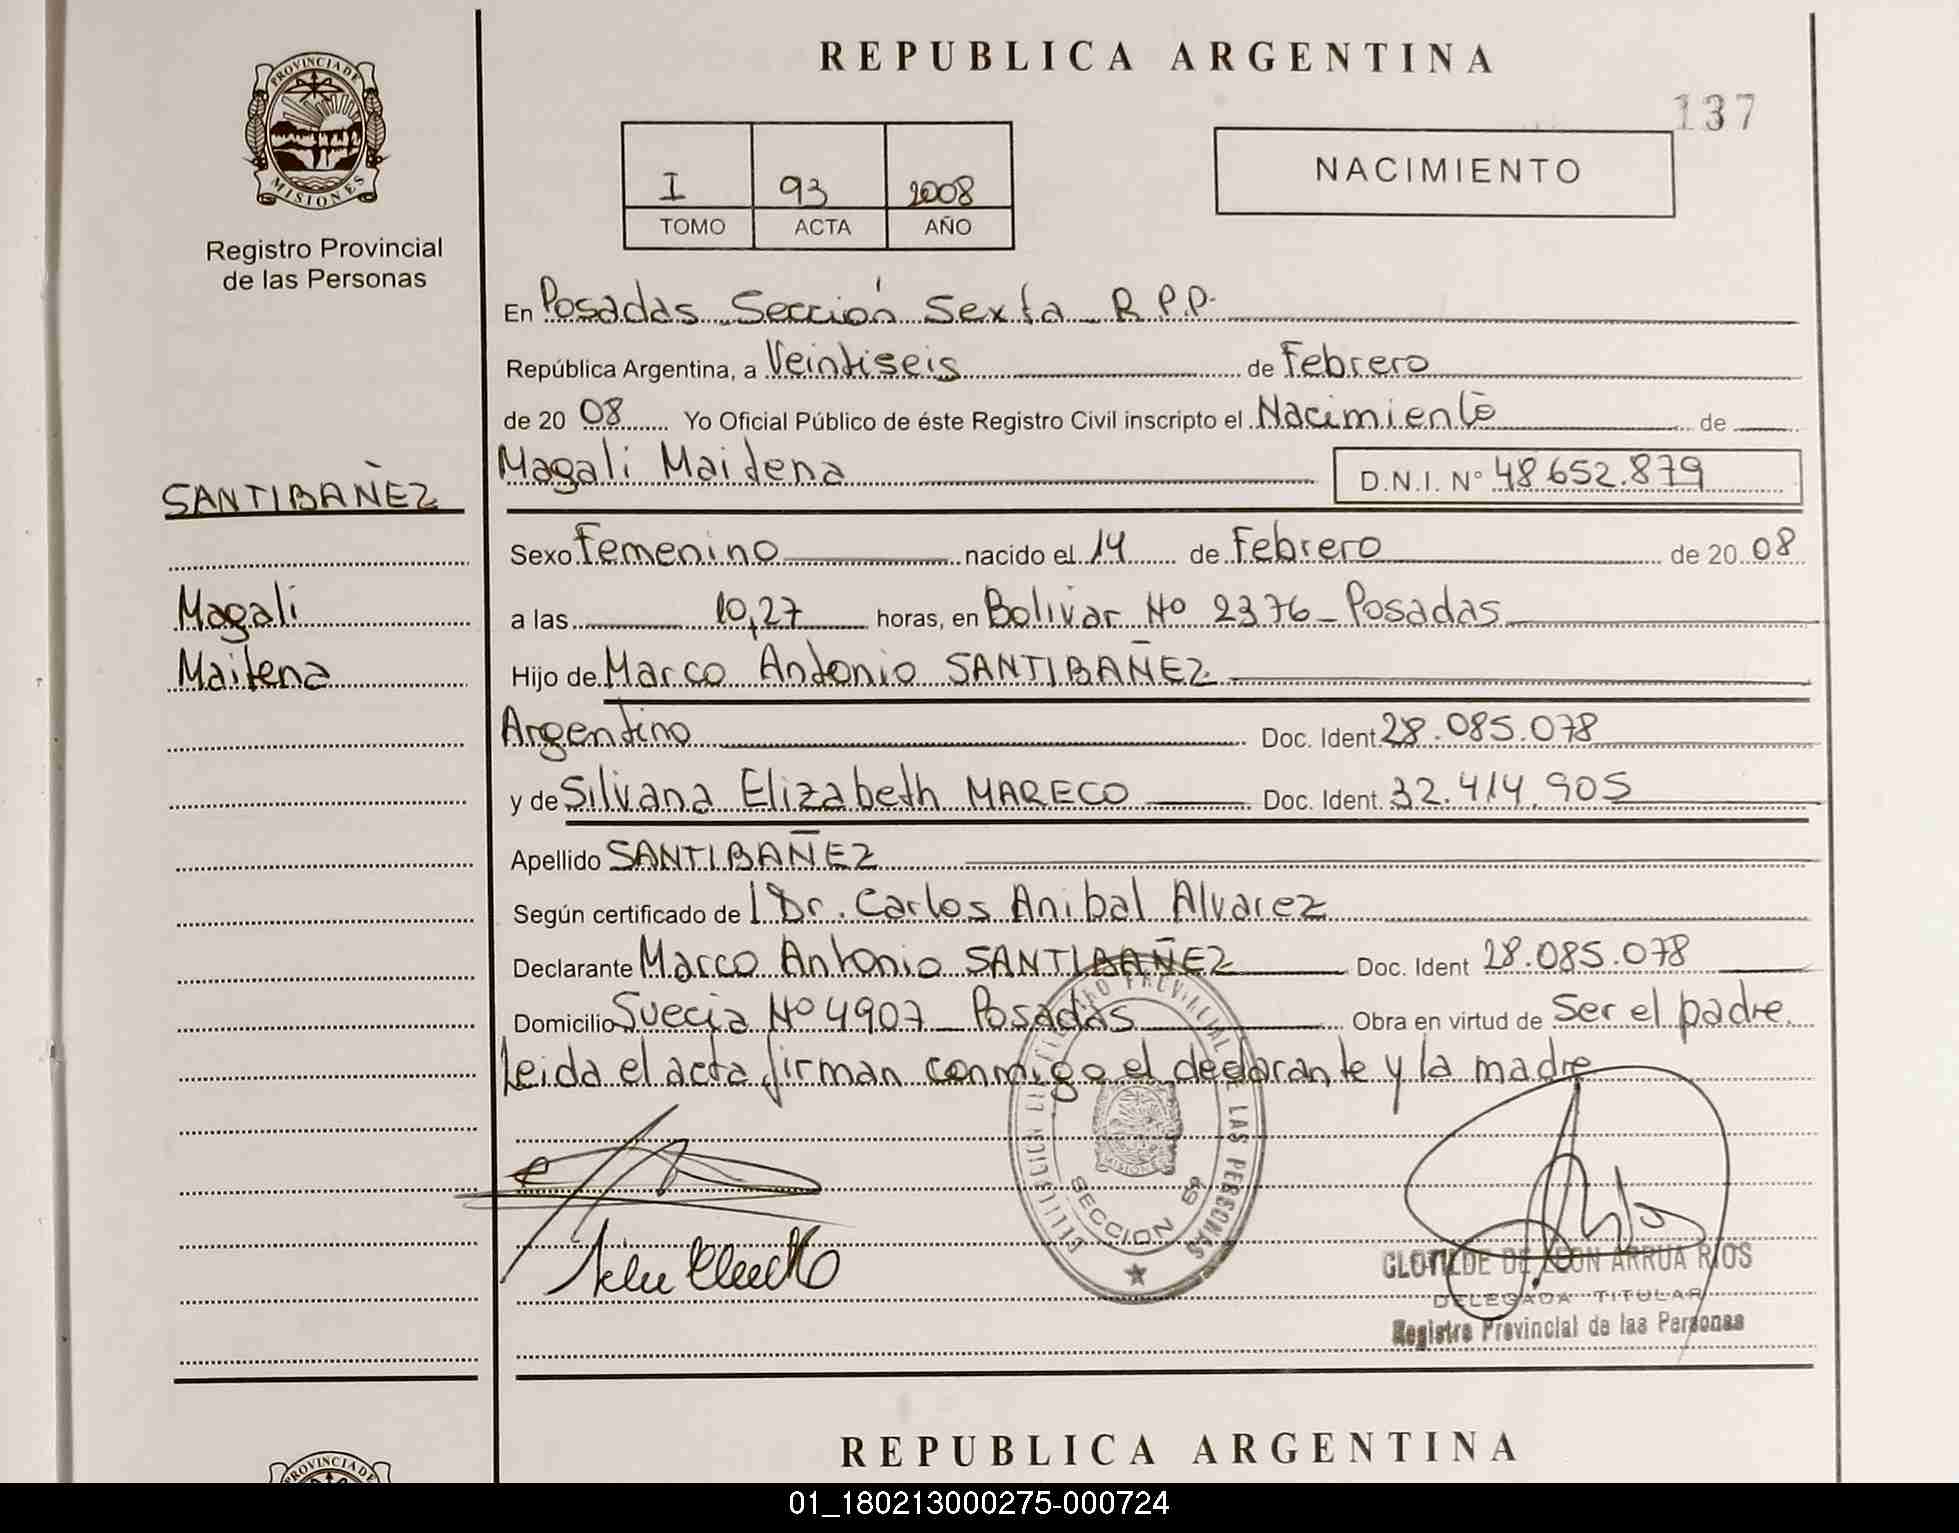 REPUBLICA ARGENTINA
137
PROVINCIA DE
MISIONES
Registro Provincial
de las Personas
I 93 2008
TOMO ACTA AÑO
NACIMIENTO
En Posadas Sección Sexta R.P.P.
República Argentina, a Veintiseis de Febrero
de 20 08 Yo Oficial Público de éste Registro Civil inscripto el Nacimiento de
Magali Maitena D.N.I. N° 48.652.879
SANTIBAÑEZ
Sexo Femenino nacido el 14 de Febrero de 20 08
Magali
a las 10,27 horas, en Bolivar Nº 2376 - Posadas
Maitena
Hijo de Marco Antonio SANTIBAÑEZ
Argentino Doc. Ident. 28.085.078
y de Silvana Elizabeth MARECO Doc. Ident. 32.414.905
Apellido SANTIBAÑEZ
Según certificado de l Dr. Carlos Anibal Alvarez
Declarante Marco Antonio SANTIBAÑEZ Doc. Ident 28.085.078
Domicilio Suecia Nº 4907 Posadas Obra en virtud de Ser el padre.
Leida el acta firman conmigo el declarante y la madre
PROVINCIAL DE LAS PERSONAS
MISIONES
SECCION 6ª
CLOTILDE DE LEON ARRUA RIOS
DELEGADA TITULAR
Registro Provincial de las Personas
REPUBLICA ARGENTINA
PROVINCIA DE
01_180213000275-000724